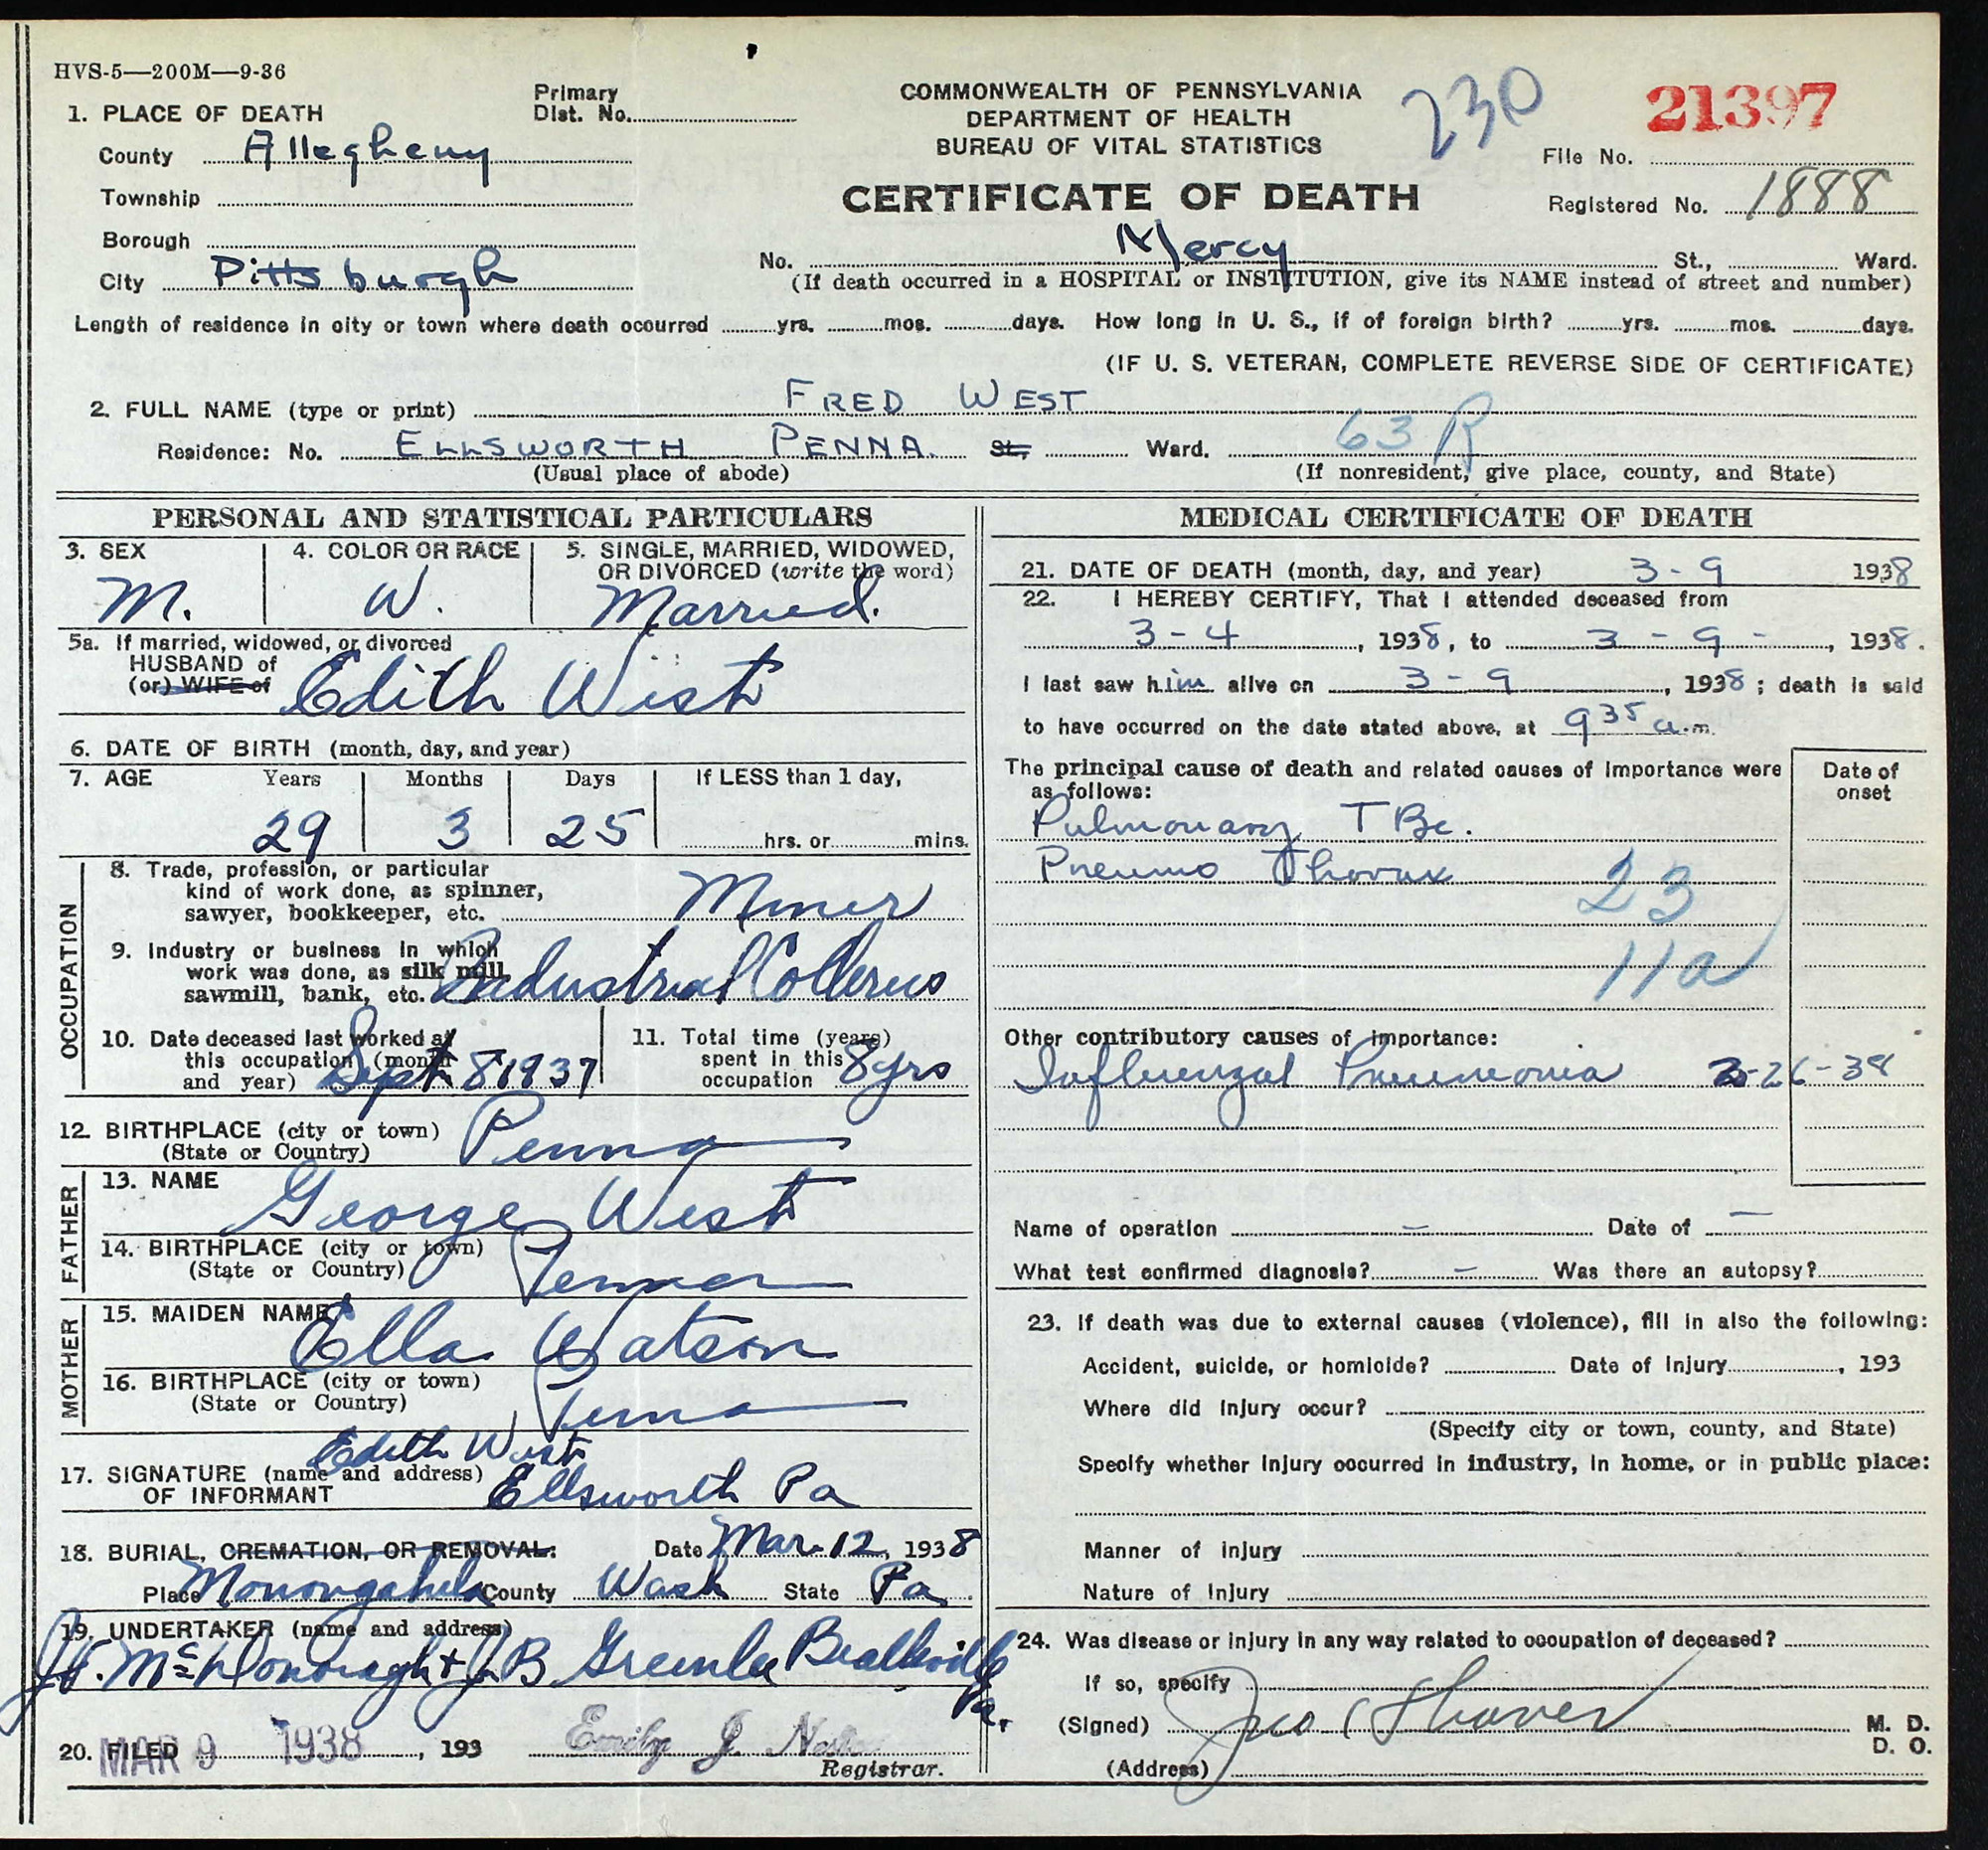 HVS-5—200M—9-36
COMMONWEALTH OF PENNSYLVANIA
DEPARTMENT OF HEALTH
BUREAU OF VITAL STATISTICS
CERTIFICATE OF DEATH
230
21397
File No.
Registered No. 1888
1. PLACE OF DEATH
Primary
Dist. No.
County Allegheny
Township
Borough
City Pittsburgh
No. Mercy St., Ward.
(If death occurred in a HOSPITAL or INSTITUTION, give its NAME instead of street and number)
Length of residence in city or town where death occurred yrs. mos. days. How long in U. S., if of foreign birth? yrs. mos. days.
(IF U. S. VETERAN, COMPLETE REVERSE SIDE OF CERTIFICATE)
2. FULL NAME (type or print) FRED WEST
Residence: No. ELLSWORTH PENNA. St., Ward. 63 R
(Usual place of abode) (If nonresident, give place, county, and State)
PERSONAL AND STATISTICAL PARTICULARS
3. SEX
M.
4. COLOR OR RACE
W.
5. SINGLE, MARRIED, WIDOWED,
OR DIVORCED (write the word)
Married.
5a. If married, widowed, or divorced
HUSBAND of
(or) WIFE of Edith West
6. DATE OF BIRTH (month, day, and year)
7. AGE Years Months Days If LESS than 1 day,
29 3 25 hrs. or mins.
OCCUPATION
8. Trade, profession, or particular
kind of work done, as spinner,
sawyer, bookkeeper, etc. Miner
9. Industry or business in which
work was done, as silk mill,
sawmill, bank, etc. Industrial Colleries
10. Date deceased last worked at
this occupation (month
and year) Sept 8 1937
11. Total time (years)
spent in this
occupation 8 yrs
12. BIRTHPLACE (city or town)
(State or Country) Penna
FATHER
13. NAME
George West
14. BIRTHPLACE (city or town)
(State or Country) Penna
MOTHER
15. MAIDEN NAME
Ella Watson
16. BIRTHPLACE (city or town)
(State or Country) Penna
Edith West
17. SIGNATURE (name and address)
OF INFORMANT Ellsworth Pa
18. BURIAL, CREMATION, OR REMOVAL: Date Mar. 12, 1938
Place Monongahela County Wash State Pa.
19. UNDERTAKER (name and address)
McDonough & J B Greenlee Beallsville
Pa.
20. FILED MAR 9 1938, 193 Emily J.
Registrar.
MEDICAL CERTIFICATE OF DEATH
21. DATE OF DEATH (month, day, and year) 3-9 1938
22. I HEREBY CERTIFY, That I attended deceased from
3-4, 1938, to 3-9-, 1938.
I last saw him alive on 3-9, 1938; death is said
to have occurred on the date stated above, at 9 35 a.m.
The principal cause of death and related causes of importance were
as follows:
Date of
onset
Pulmonary TBc.
Pneumo Thorax
23
11a
Other contributory causes of importance:
Influenzal Pneumonia 2-26-38
Name of operation – Date of –
What test confirmed diagnosis? – Was there an autopsy?
23. If death was due to external causes (violence), fill in also the following:
Accident, suicide, or homicide? Date of Injury, 193
Where did injury occur?
(Specify city or town, county, and State)
Specify whether injury occurred in industry, in home, or in public place:
Manner of injury
Nature of injury
24. Was disease or injury in any way related to occupation of deceased?
If so, specify
(Signed) M. D.
D. O.
(Address)